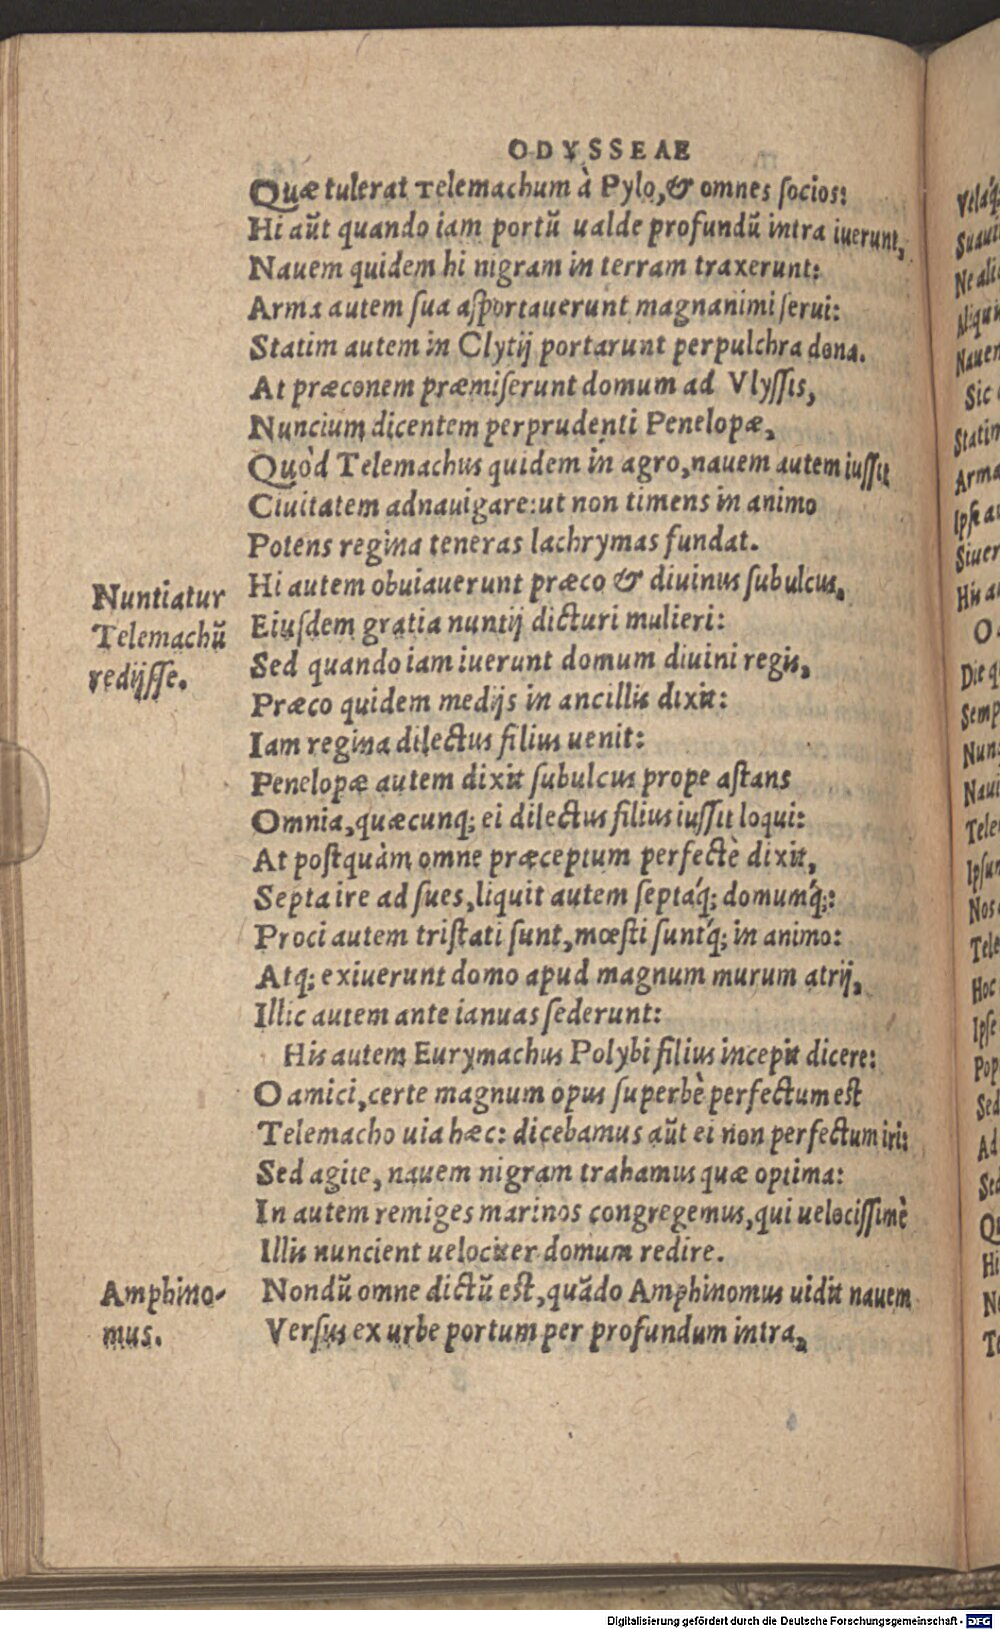 ODYSSEAE
Quæ tulerat Telemachum à Pylo, & omnes ſocios:
Hi aũt quando iam portũ ualde profundũ intra iuerunt,
Nauem quidem hi nigram in terram traxerunt:
Arma autem ſua aſportauerunt magnanimi ſerui:
Statim autem in Clytij portarunt perpulchra dona.
At præconem præmiſerunt domum ad Vlyſſis,
Nuncium dicentem perprudenti Penelopæ,
Quòd Telemachus quidem in agro, nauem autem iuſſit
Ciuitatem adnauigare: ut non timens in animo
Potens regina teneras lachrymas fundat.
Nuntiatur
Telemachũ
redijſſe.
Hi autem obuiauerunt præco & diuinus ſubulcus,
Eiuſdem gratia nuntij dicturi mulieri:
Sed quando iam iuerunt domum diuini regis,
Præco quidem medijs in ancillis dixit:
Iam regina dilectus filius uenit:
Penelopæ autem dixit ſubulcus prope aſtans
Omnia, quæcunq; ei dilectus filius iuſſit loqui:
At poſtquàm omne præceptum perfectè dixit,
Septa ire ad ſues, liquit autem ſeptáq; domumq́;:
Proci autem triſtati ſunt, mœſti ſuntq́; in animo:
Atq; exiuerunt domo apud magnum murum atrij,
Illic autem ante ianuas ſederunt:
His autem Eurymachus Polybi filius incepit dicere:
O amici, certe magnum opus ſuperbè perfectum eſt
Telemacho uia hæc: dicebamus aũt ei non perfectum iri:
Sed agite, nauem nigram trahamus quæ optima:
In autem remiges marinos congregemus, qui uelociſſimè
Illis nuncient uelociter domum redire.
Amphino-
mus.
Nondũ omne dictũ eſt, quãdo Amphinomus uidit nauem
Verſus ex urbe portum per profundum intra,
Digitalisierung gefördert durch die Deutsche Forschungsgemeinschaft - DFG